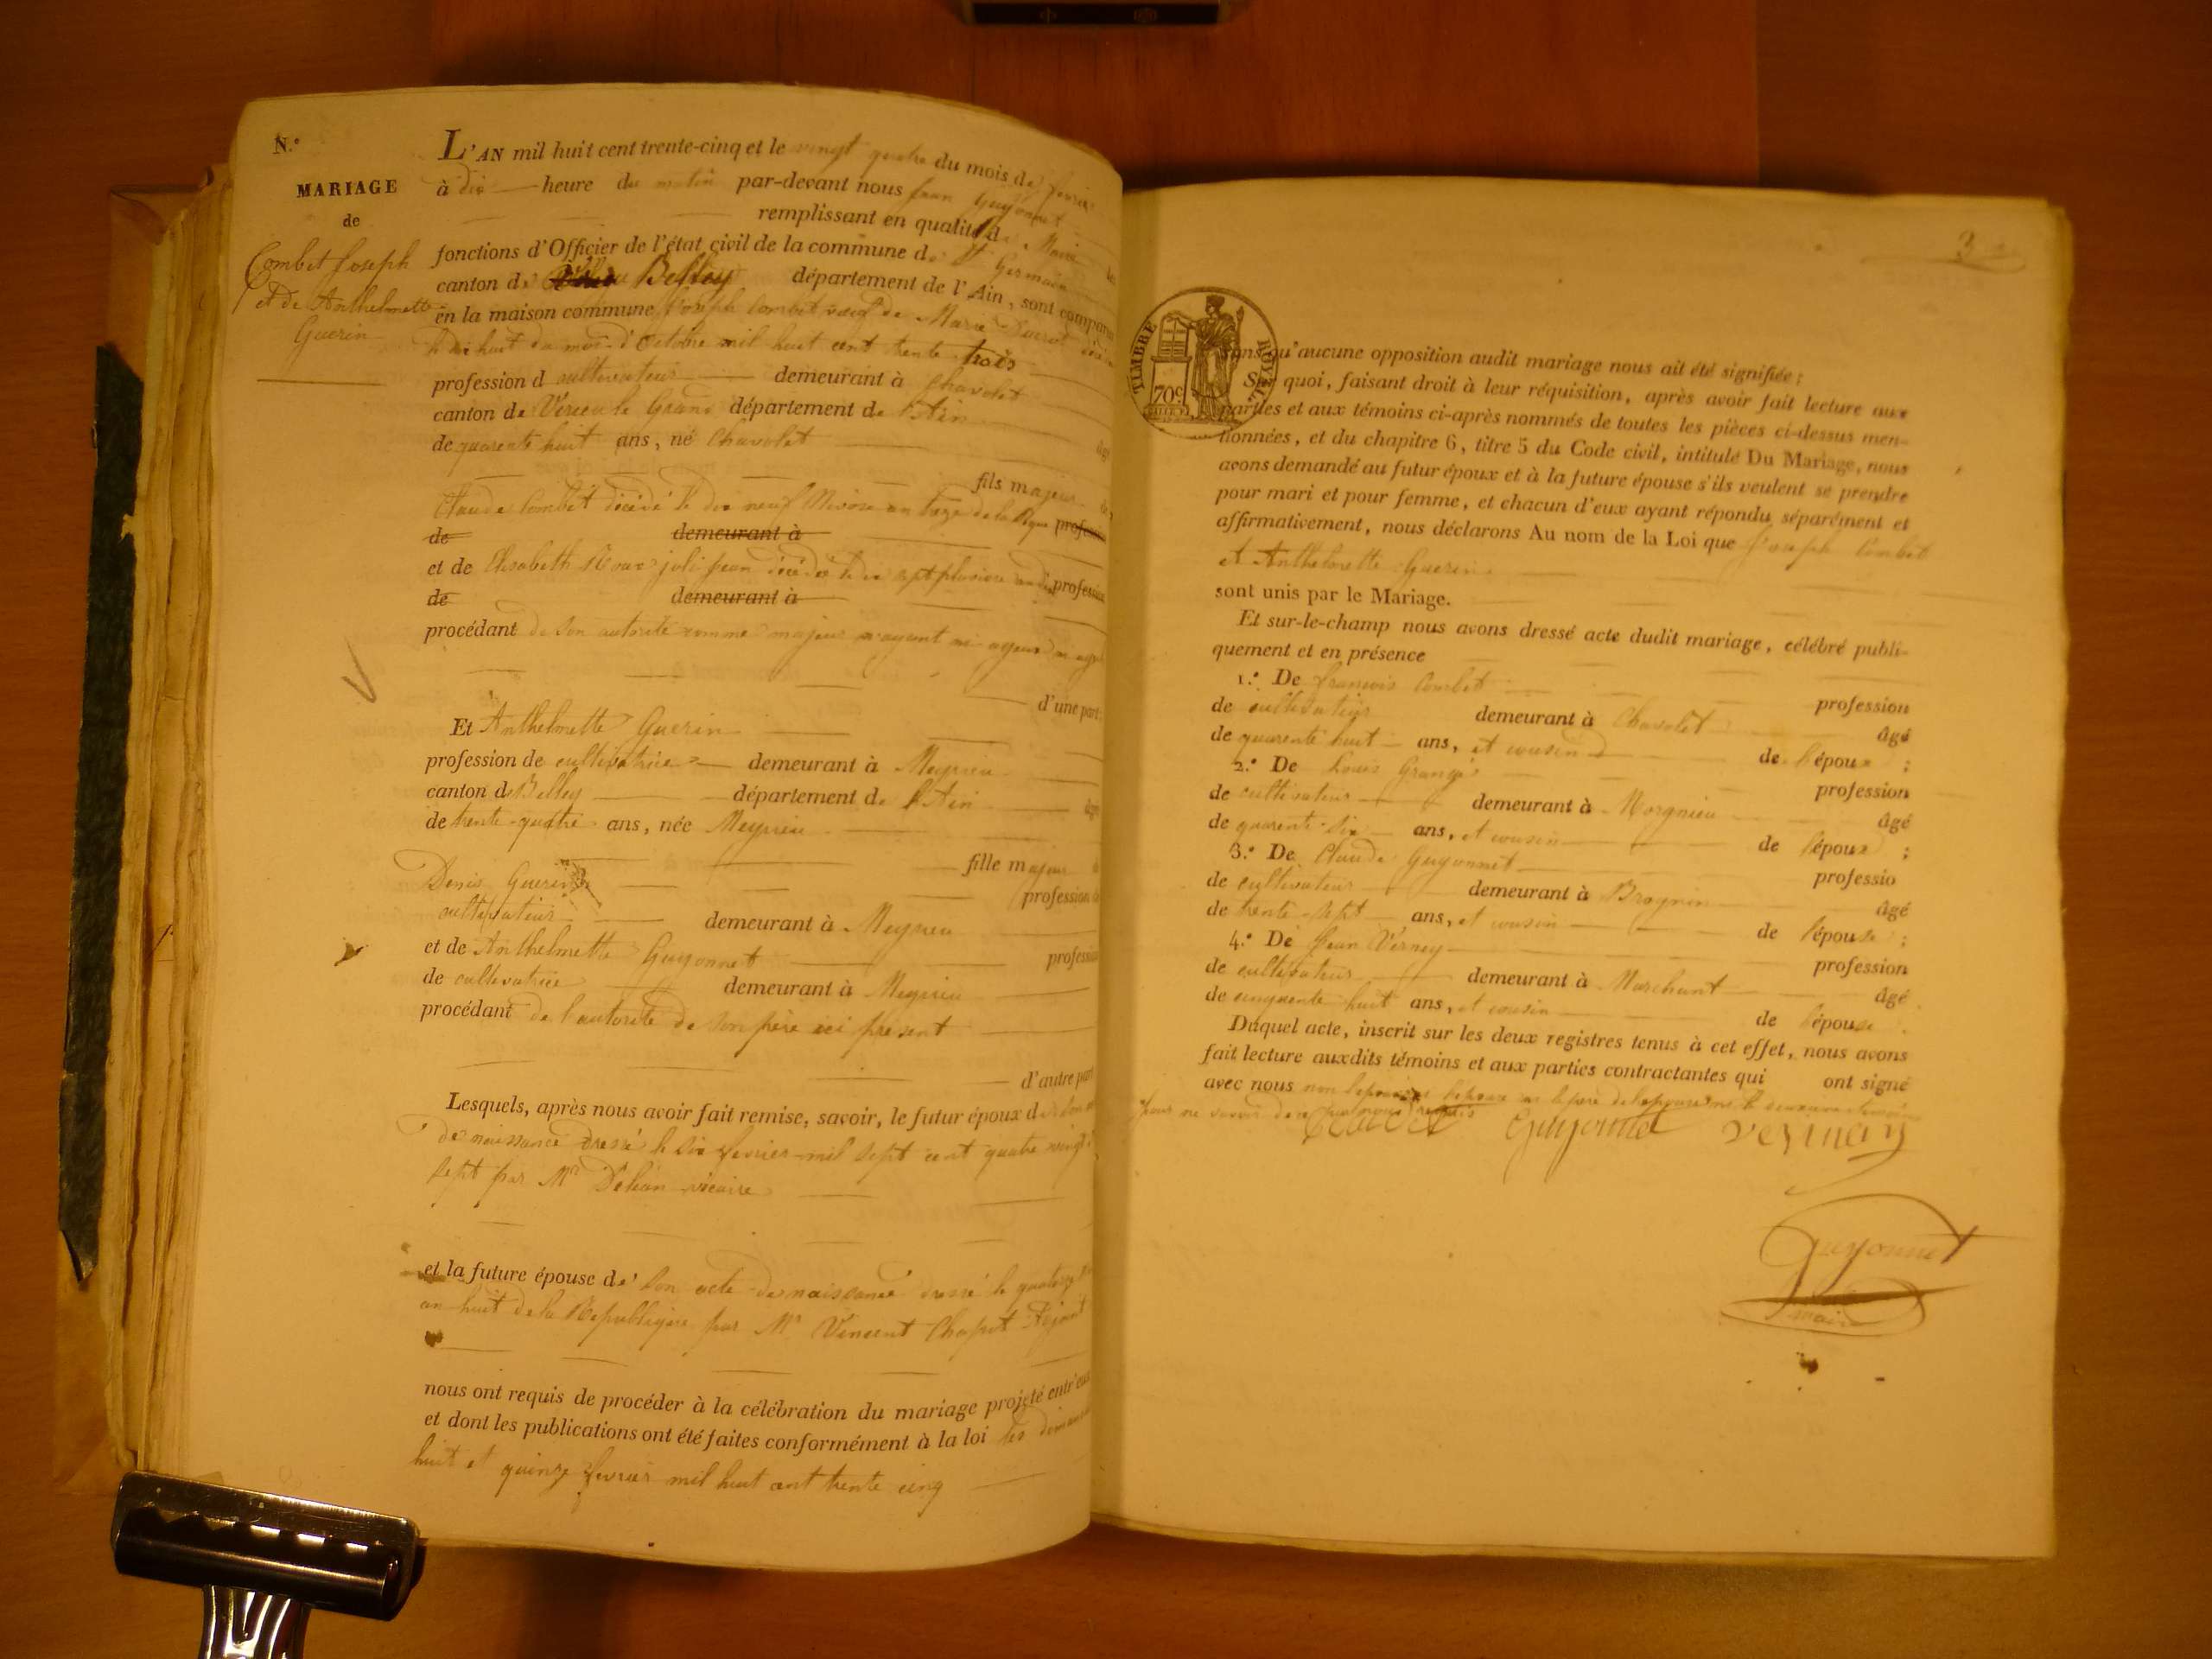 N.°
MARIAGE
de
Combet Joseph
et de Anthelmette
Guerin
L'AN mil huit cent trente-cinq et le vingt quatre du mois de fevrier
à dix heure du matin par-devant nous Jean Guyonnet
remplissant en qualité de Maire les
fonctions d'Officier de l'état civil de la commune de St Germain
canton de Belley département de l'Ain, sont comparus
en la maison commune Joseph Combet veuf de Marie
le dix huit du mois d'Octobre mil huit cent trente trois
profession d cultivateur demeurant à Chavolet
canton de Virieu le Grand département de l'Ain
de quarente huit ans, né Chavolet âgé
fils majeur de
Claude Combet décédé le dix neuf Nivose an treze de la
de demeurant à
et de Elisabeth Roux joli jean décédée le dix sept pluviose profession
de demeurant à
procédant de son autorité comme majeur n'ayant ni ayeux ni
d'une part;
Et Anthelmette Guerin
profession de cultivatrice demeurant à Meyrieu
canton de Belley département de l'Ain âgée
de trente-quatre ans, née Meyrieu
fille majeur de
Denis Guerin profession de
cultivateur demeurant à Meyrieu
et de Anthelmette Guyonnet profession
de cultivatrice demeurant à Meyrieu
procédant de l'autorité de son père ici présent
d'autre part
Lesquels, après nous avoir fait remise, savoir, le futur époux de son
de naissance dressé le six fevrier mil sept cent quatre vingt
sept par Mr vicaire
et la future épouse de son acte de naissance dressé le quatorze
an huit de la République par Mr Vincent Chapot Adjoint
nous ont requis de procéder à la célébration du mariage projeté entr'eux
et dont les publications ont été faites conformément à la loi les dimanches
huit et quinze fevrier mil huit cent trente cinq
3
TIMBRE ROYAL
70c
sans qu'aucune opposition audit mariage nous ait été signifiée;
Sur quoi, faisant droit à leur réquisition, après avoir fait lecture aux
parties et aux témoins ci-après nommés de toutes les pièces ci-dessus men-
tionnées, et du chapitre 6, titre 5 du Code civil, intitulé Du Mariage, nous
avons demandé au futur époux et à la future épouse s'ils veulent se prendre
pour mari et pour femme, et chacun d'eux ayant répondu séparément et
affirmativement, nous déclarons Au nom de la Loi que Joseph Combet
et Anthelmette Guerin
sont unis par le Mariage.
Et sur-le-champ nous avons dressé acte dudit mariage, célébré publi-
quement et en présence
1.° De francois Combet profession
de cultivateur demeurant à Chavolet âgé
de quarente huit ans, et cousin de l'époux ;
2.° De Louis Grangé profession
de cultivateur demeurant à Morgnieu âgé
de quarente-six ans, et cousin de l'époux ;
3.° De Claude Guyonnet professio
de cultivateur demeurant à Brognin âgé
de trente-sept ans, et cousin de l'épouse ;
4.° De Jean Verney profession
de cultivateur demeurant à Marchant âgé
de cinquente huit ans, et cousin de l'épouse .
Duquel acte, inscrit sur les deux registres tenus à cet effet, nous avons
fait lecture auxdits témoins et aux parties contractantes qui ont signé
avec nous non l'époux l'épouse ni le père de l'épouse
pour ne savoir de ce requis
Guyonnet verney
Guyonnet
Maire